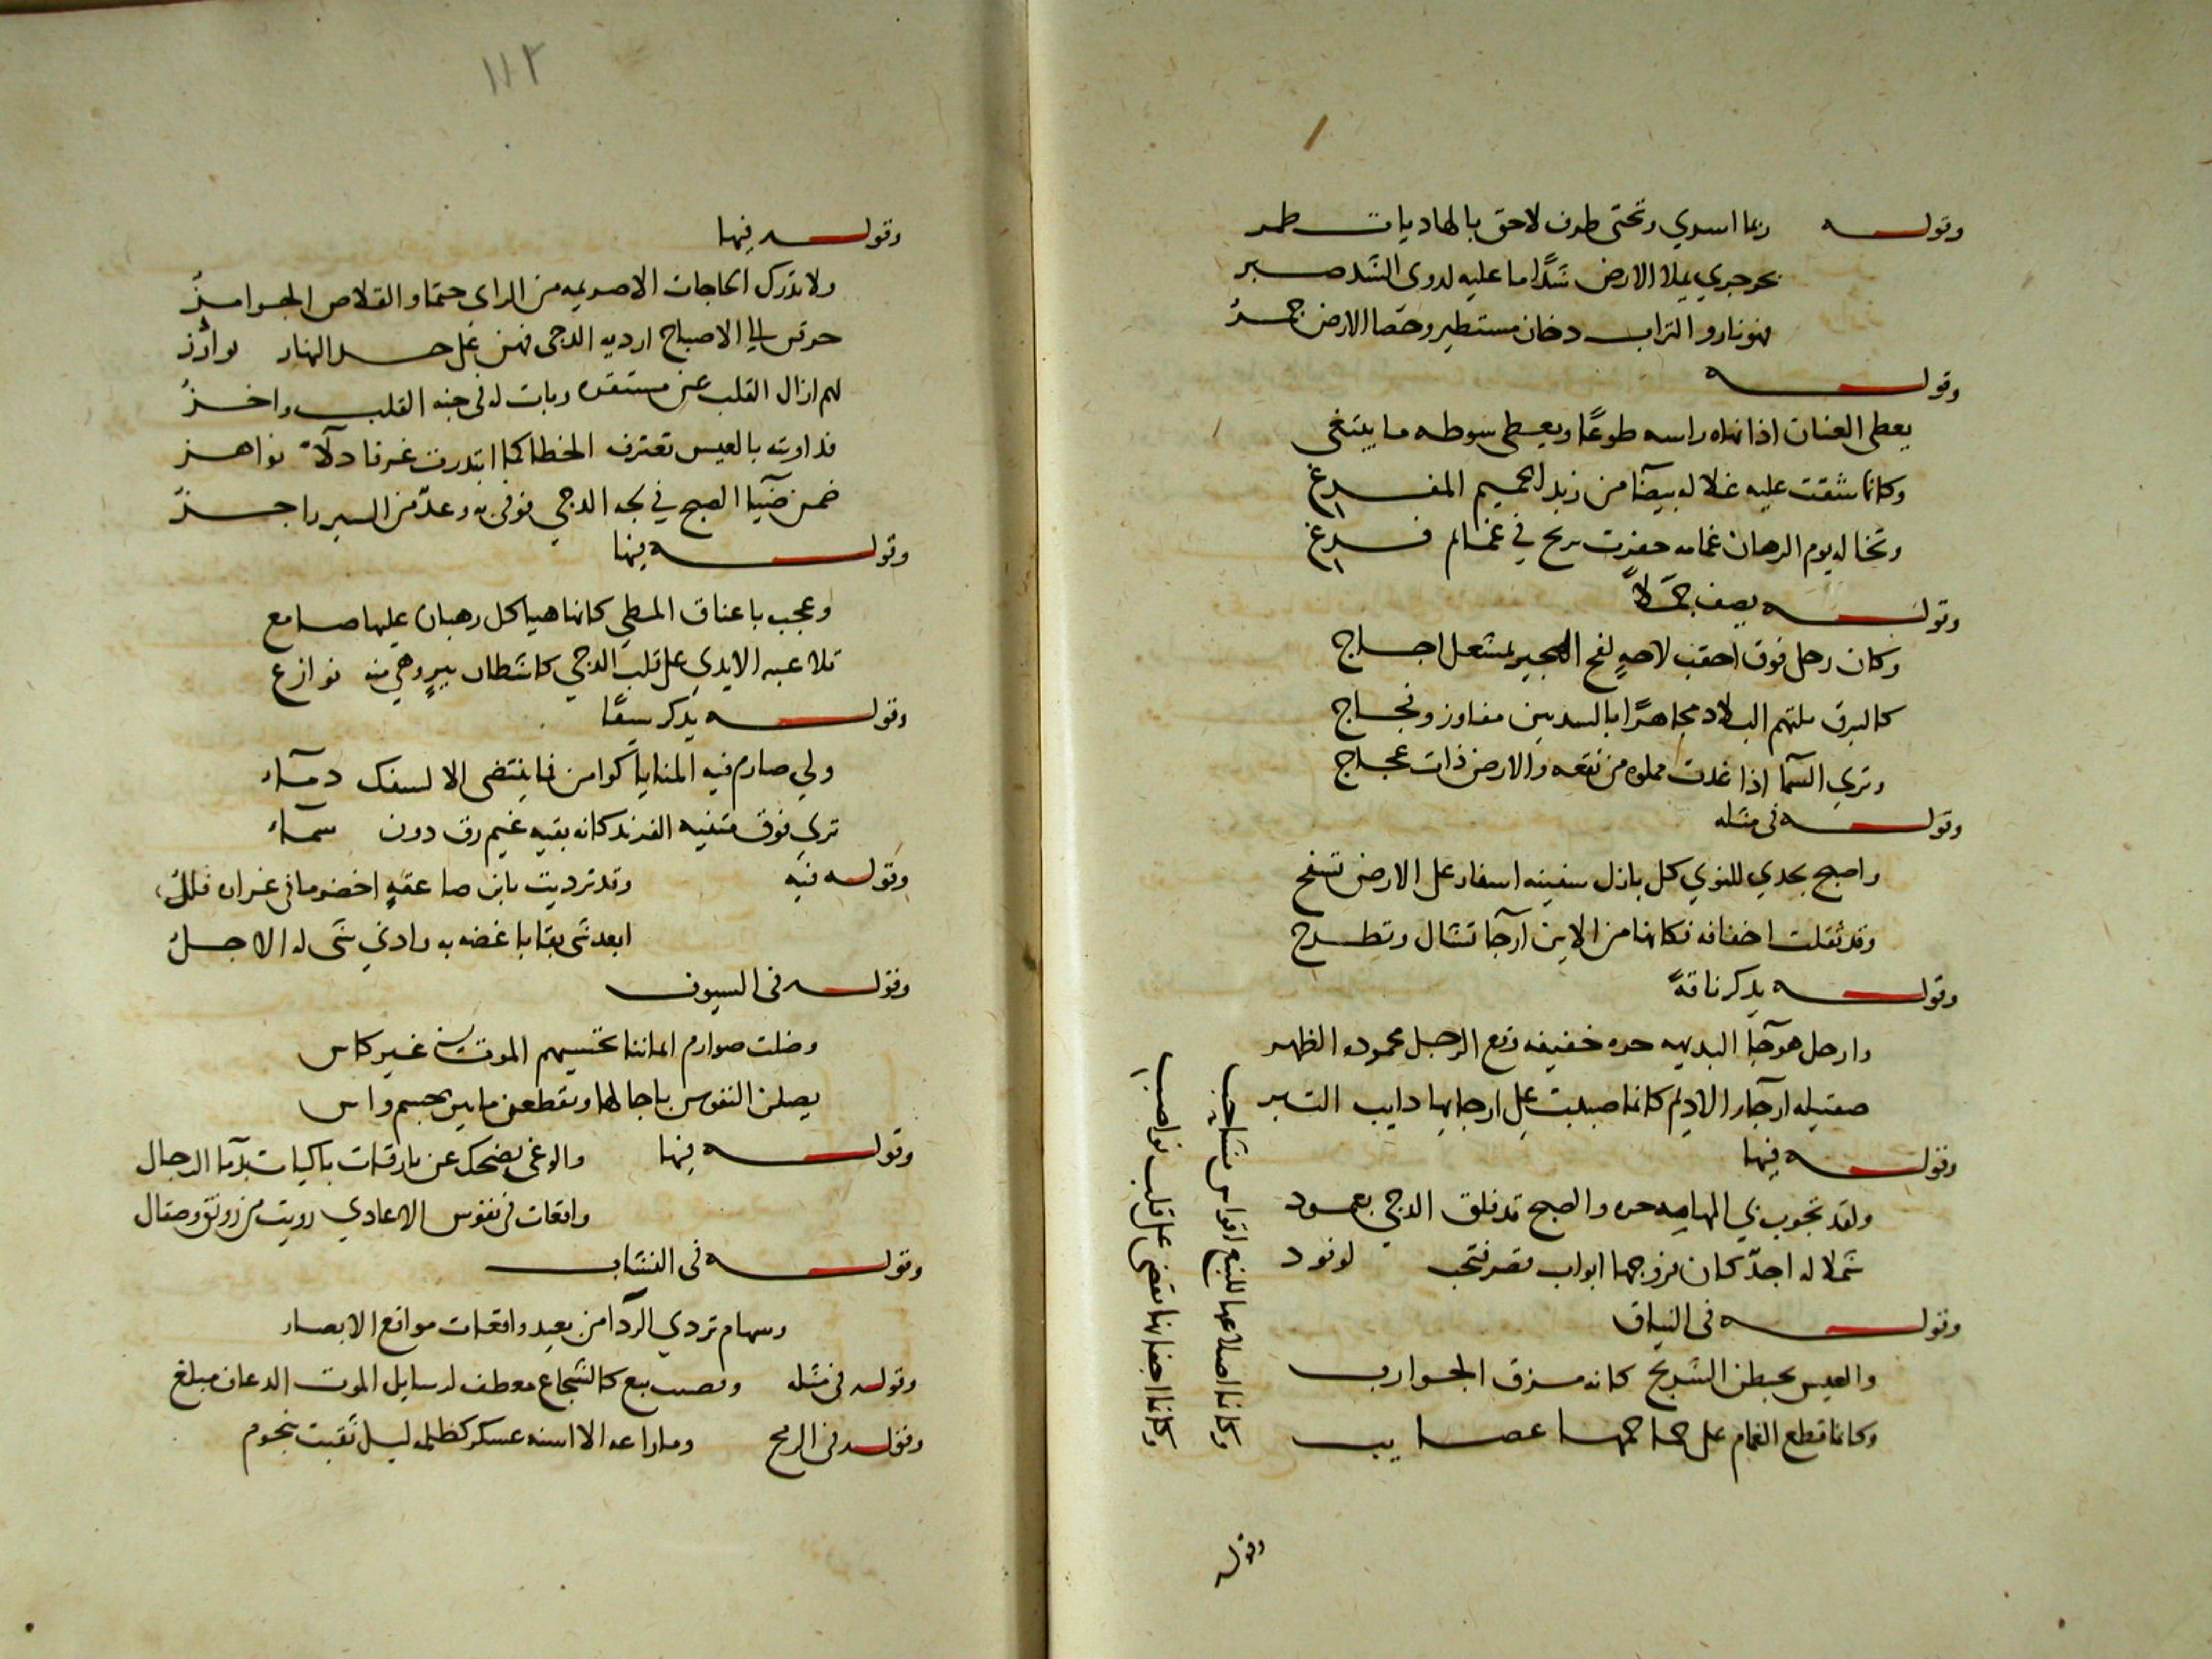 وقوله ربما اسري وتحتي طرف لاحق بالهاديات طمر
بحر جري يملا الارض شدا ما عليه لدوي الشد صبر
فهو نار والتراب دخان مستطير وحصا الارض جمر
وقوله
يعطي العنان اذا نهاه راسه طوعًا ويعطي سوطه ما يبتغي
وكانما شققت عليه غلاله بيضآ من زبد الحميم المفرغ
وتخاله يوم الرهان غمامه حفزت بريح في غمام فرغ
وقوله يصف جملاً
وكان رحلي فوق احقب لاحه لفح الهجير بمشعل اجاج
كالبرق يلتهم البلاد مجاهرًا بالسير بين مفاوز وفجاج
وتري السمآ اذا غدت مملوه من نقعه والارض ذات عجاج
وقوله في مثله
واصبح يحدي للنوي كل بازل سفينه اسفار على الارض تسفح
وقد ثقلت اخفافه فكانها من الاين آرحآ تشال وتطرح
وقوله يذكر ناقةً
وارحل هوجآ البديهه حره خفيفه وقع الرجل محموده الظهر
صقيله ارجآ الاديم كانما صببت على ارجايها دايب التبر
وقوله فيها
ولقد تجوب بي المهامه حره والصبح قد فلق الدجي بعمود
شملاله اجد كان فروجها ابواب قصر فتحت لوفود
وقوله في النياق
والعيس يحبطن السريح كانه مزق الجوارب
وكانما قطع الغمام على جماجمها عصايب
وكانما اضلاعها للنبع اقواس شاحب
وكانما اجفانها تغضي على قلب نواضب
وقوله
١١٢
وقوله فيها
ولا تدرك الحاجات الا صريمه من الراي حتما والقلاص الجوامز
خرقن الي الاصباح ارديه الدجي فهن على حد النهار بوارز
لهم ازال القلب عن مستقره وبات له في جنبه القلب واخز
فداويته بالعيس تغترف الخطا كما ابتدرت غرفا دلآ نواهز
ضمن ضيآ الصبح في لجه الدجي فوفي به وعد من السير ناجز
وقوله فيها
وعجب باعناق المطي كانها هياكل رهبان عليها صوامع
تلاعبه الايدي على قلب الدجي كاشطان بير وهي منه نوازع
وقوله يذكر سيفًا
ولي صارم فيه المنايا كوامن فما ينتضى الا لسفك دمآء
تري فوق متنيه الفرند كانه بقيه غيم رق دون سماء
وقوله فيه وقد ترديت بابن صاعقة اخضر ما في غراره فلل
ابعد شي بقا باغضه به وادني شي له الاجل
وقوله في السيوف
وظلت صوارم ايماننا تحسيهم الموت في غير كاس
يصلن النفوس باجالها ويقطعن ما بين جسم وراس
وقوله فيها والوغي يضحك عن بارقات باكيات بدمآ الرجال
واقعات في نفوس الاعادي رويت من رونق وصقال
وقوله في النشاب
وسهام تردي الردا من بعيد واقعات مواقع الابصار
وقوله في مثله كالشجاع معطف لرسايل الموت الدعاف مبلغ
وقوله في الرمح وما راعه الا اسنه عسكر كظلمه ليل ثقبت بنجوم